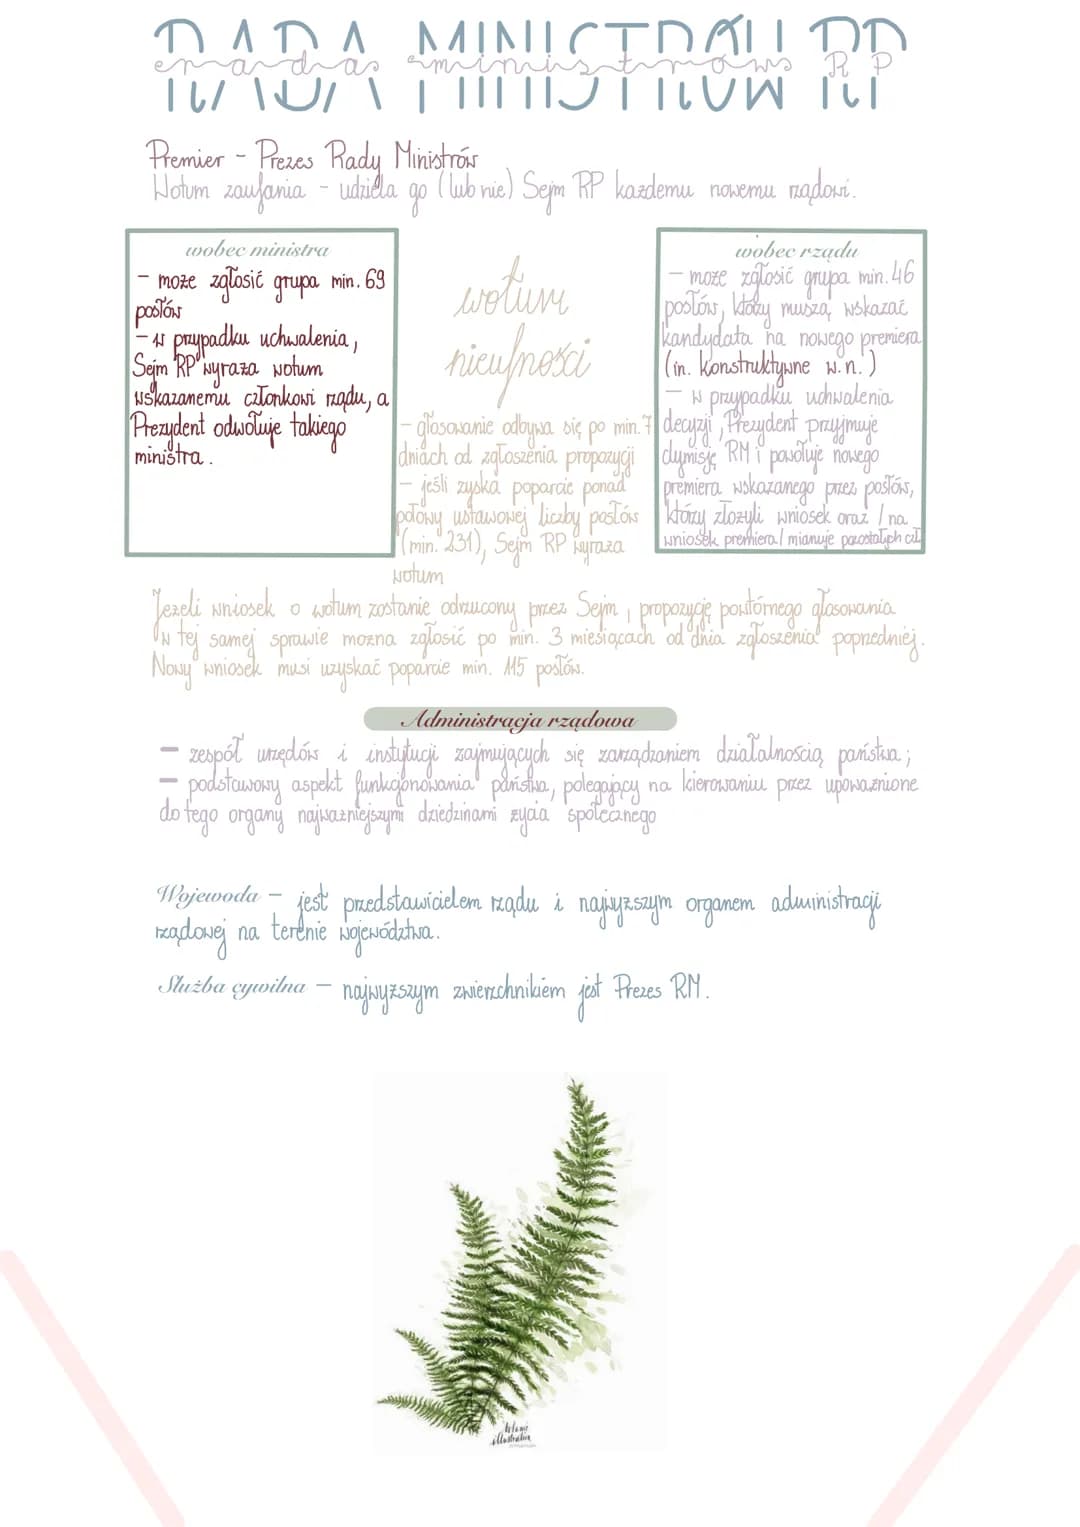 RADA MINISTRÓW RP
rada ministrów RP
Premier - Prezes Rady Ministrów
Wotum zaufania - udziela go (lub nie) Sejm RP każdemu nowemu rządowi.
wobec ministra
- może zgłosić grupa min. 69
posłów
- w przypadku uchwalenia,
Sejm RP wyraża wotum
wskazanemu członkowi rządu, a
Prezydent odwołuje takiego
ministra.
wotum
nieufności
- głosowanie odbywa się po min. 7
dniach od zgłoszenia propozycji
- jeśli zyska poparcie ponad
połowy ustawowej liczby posłów
(min. 231), Sejm RP wyraża
wotum
wobec rządu
- może zgłosić grupa min. 46
posłów, którzy muszą wskazać
kandydata na nowego premiera
(in. konstruktywne w.n.)
- w przypadku uchwalenia
decyzji, Prezydent przyjmuje
dymisję RM i powołuje nowego
premiera wskazanego przez posłów,
którzy złożyli wniosek oraz /na
wniosek premiera/ mianuje pozostałych czł.
Jeżeli wniosek o wotum zostanie odrzucony przez Sejm, propozycję powtórnego głosowania
w tej samej sprawie można zgłosić po min. 3 miesiącach od dnia zgłoszenia poprzedniej.
Nowy wniosek musi uzyskać poparcie min. 115 posłów.
Administracja rządowa
- zespół urzędów i instytucji zajmujących się zarządzaniem działalnością państwa;
- podstawowy aspekt funkcjonowania państwa, polegający na kierowaniu przez upoważnione
do tego organy najważniejszymi dziedzinami życia społecznego
Wojewoda - jest przedstawicielem rządu i najwyższym organem administracji
rządowej na terenie województwa.
Służba cywilna - najwyższym zwierzchnikiem jest Prezes RM.